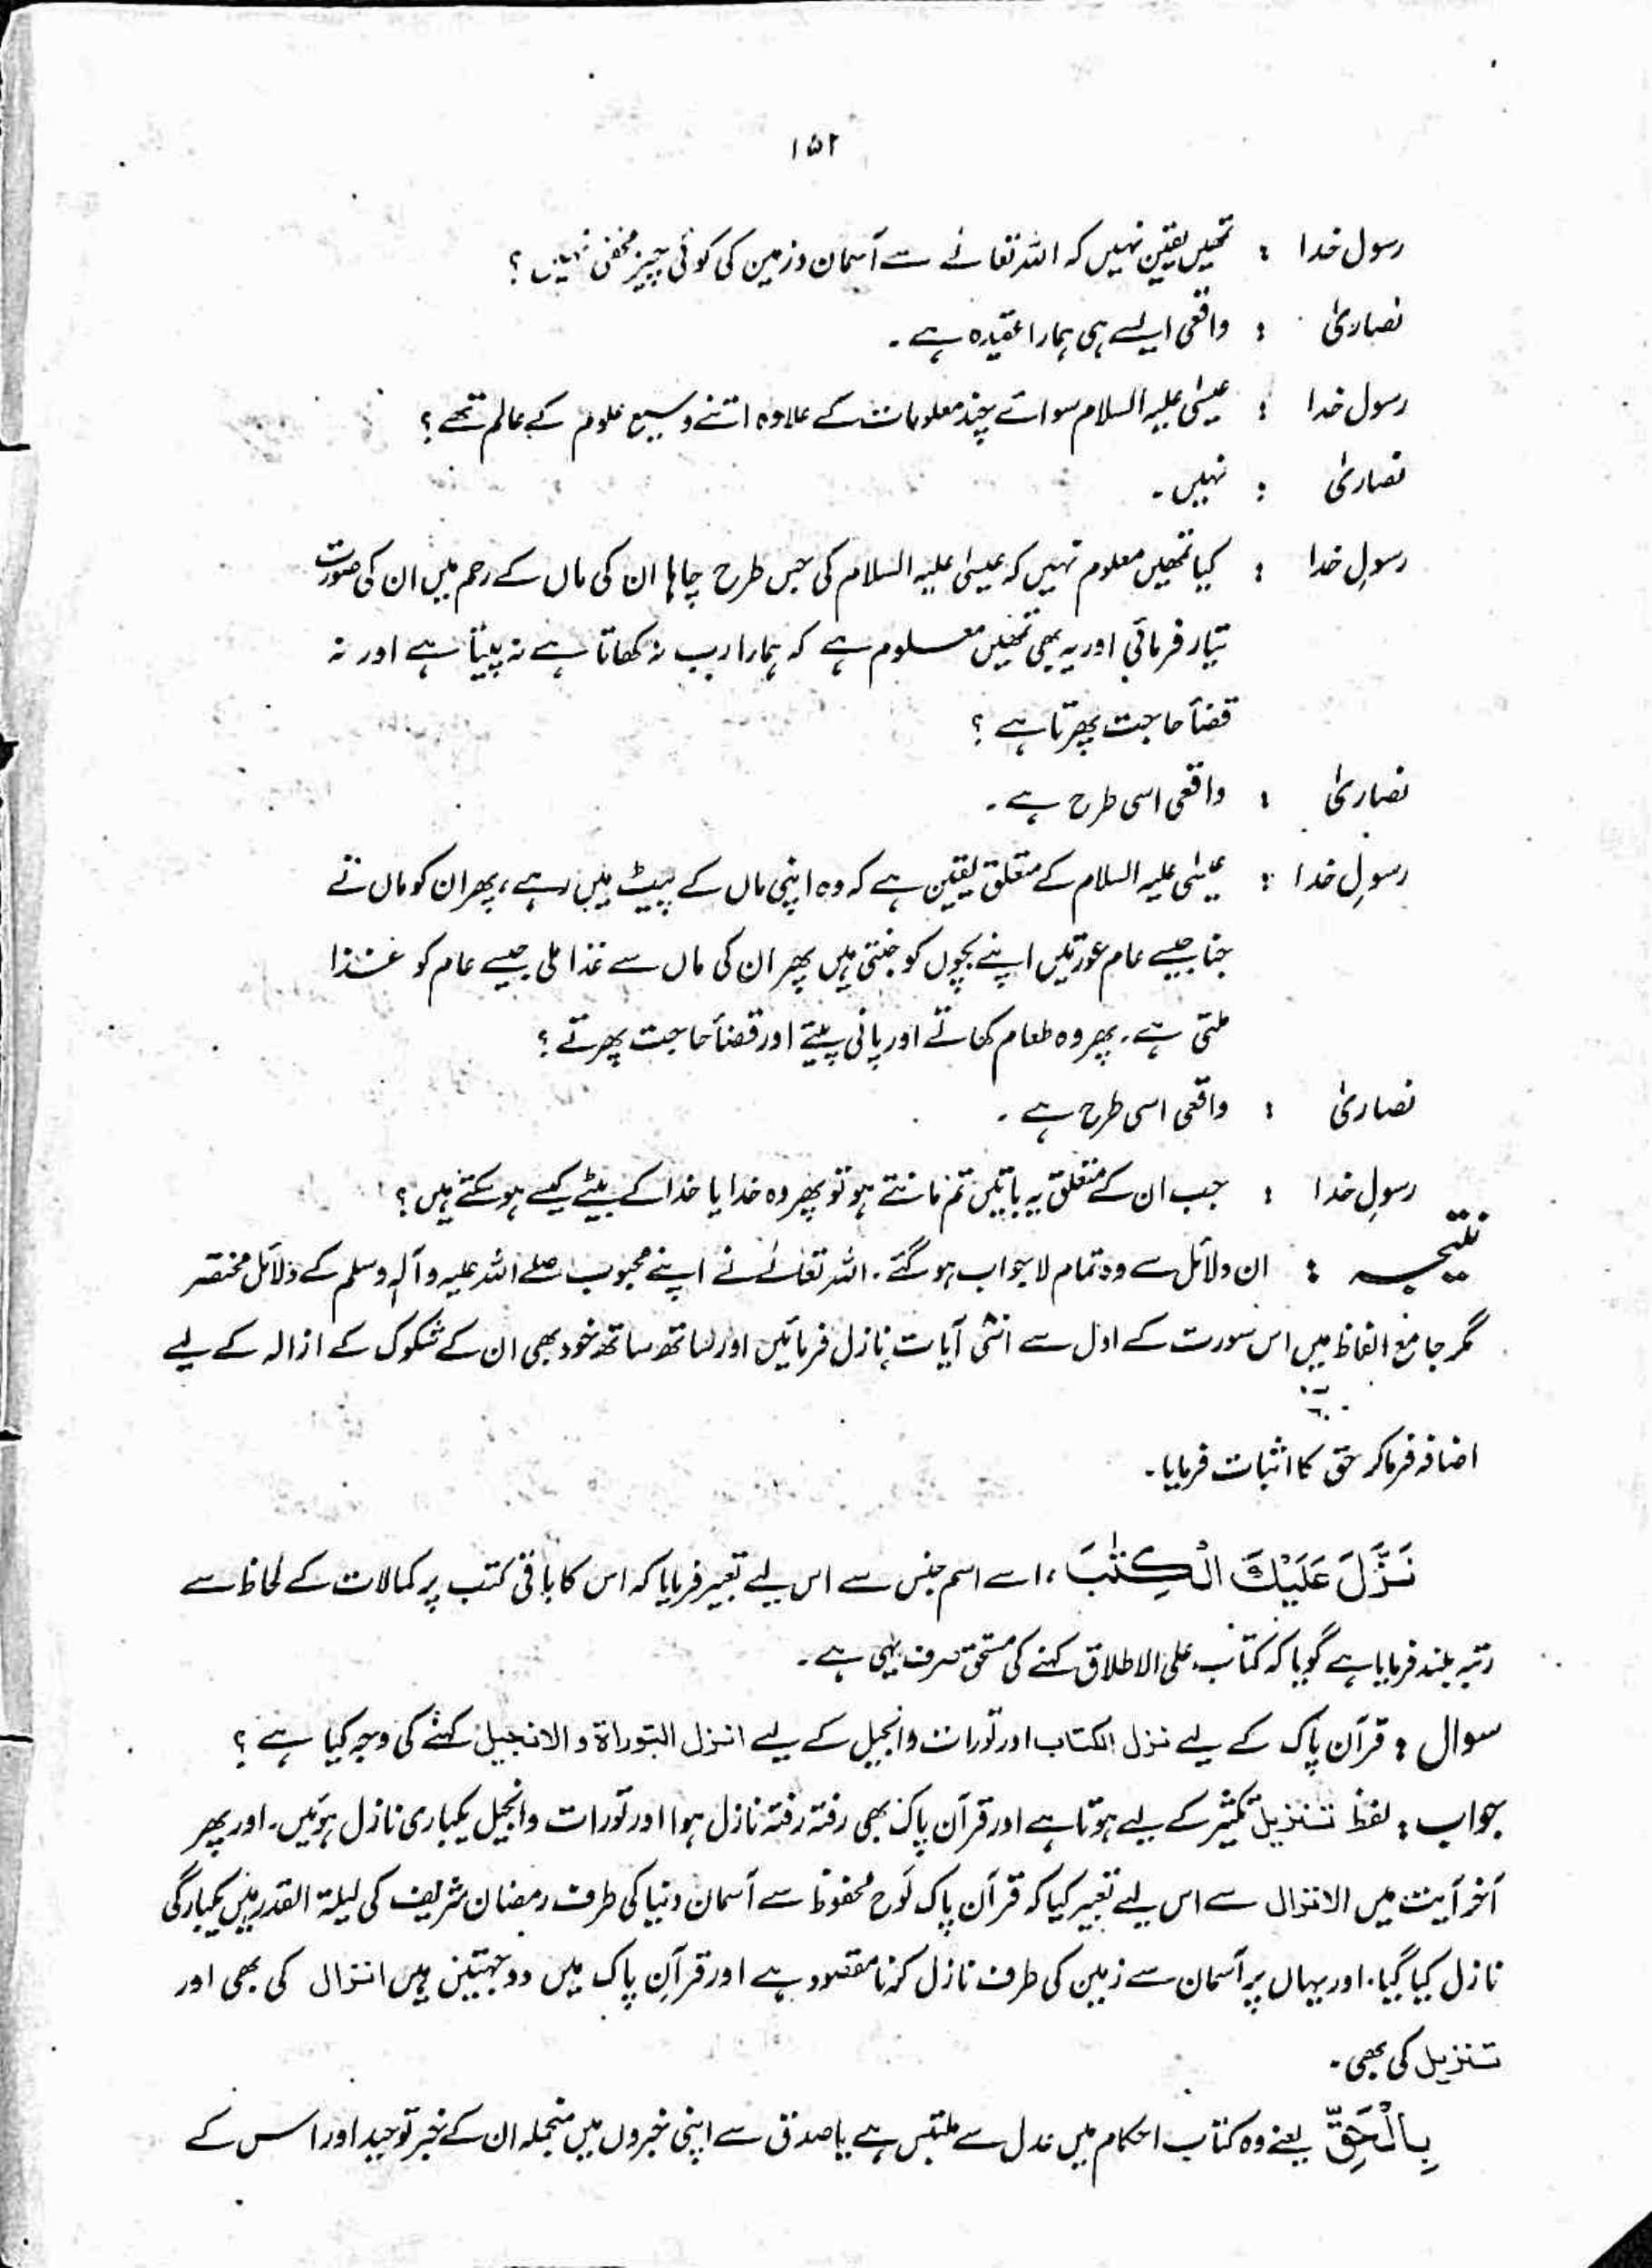 ۱۵۲
رسول خدا : تمھیں یقین نہیں کہ اللہ تعالےٰ سے آسمان و زمین کی کوئی چیز مخفی نہیں ؟
نصاریٰ : واقعی ایسے ہی ہمارا عقیدہ ہے ۔
رسول خدا : عیسیٰ علیہ السلام سوائے چند معلومات کے علاوہ اتنے وسیع علوم کے عالم تھے ؟
نصاریٰ : نہیں ۔
رسولِ خدا : کیا تمھیں معلوم نہیں کہ عیسیٰ علیہ السلام کی جس طرح چاہا ان کی ماں کے رحم میں ان کی صورت
تیار فرمائی اور یہ بھی تمھیں معلوم ہے کہ ہمارا رب نہ کھاتا ہے نہ پیتا ہے اور نہ
قضأ حاجت پھرتا ہے ؟
نصاریٰ : واقعی اسی طرح ہے ۔
رسولِ خدا : عیسٰی علیہ السلام کے متعلق یقین ہے کہ وہ اپنی ماں کے پیٹ میں رہے ، پھر ان کو ماں نے
جنا جیسے عام عورتیں اپنے بچوں کو جنتی ہیں پھر ان کی ماں سے غذا ملی جیسے عام کو غذا
ملتی ہے ۔ پھر وہ طعام کھاتے اور پانی پیتے اور قضأ حاجت پھرتے ؟
نصاریٰ : واقعی اسی طرح ہے ۔
رسولِ خدا : جب ان کے متعلق یہ باتیں تم مانتے ہو تو پھر وہ خدا یا خدا کے بیٹے کیسے ہو سکتے ہیں ؟
نتیجہ : ان دلائل سے وہ تمام لاجواب ہو گئے ۔ اللہ تعالےٰ نے اپنے محبوب صلے اللہ علیہ وآلہٖ وسلم کے دلائل مختصر
مگر جامع الفاظ میں اس سورت کے اول سے اسّی آیات نازل فرمائیں اور ساتھ ساتھ خود بھی ان کے شکوک کے ازالہ کے لیے
اضافہ فرما کر حق کا اثبات فرمایا ۔
نَزَّلَ عَلَيْكَ الْكِتٰبَ ، اسے اسم جنس سے اس لیے تعبیر فرمایا کہ اس کا باقی کتب پر کمالات کے لحاظ سے
رتبہ بلند فرمایا ہے گویا کہ کتاب علی الاطلاق کہنے کی مستحق صرف یہی ہے ۔
سوال : قرآن پاک کے لیے نزل الکتاب اور تورات و انجیل کے لیے انزل التوراۃ و الانجیل کہنے کی وجہ کیا ہے ؟
جواب : لفظ تنزیل تکثیر کے لیے ہوتا ہے اور قرآن پاک بھی رفتہ رفتہ نازل ہوا اور تورات و انجیل یکباری نازل ہوئیں ۔ اور پھر
آخر آیت میں الانزال سے اس لیے تعبیر کیا کہ قرآن پاک لَوح محفوظ سے آسمان دنیا کی طرف رمضان شریف کی لیلۃ القدر میں یکبارگی
نازل کیا گیا ۔ اور یہاں پر آسمان سے زمین کی طرف نازل کرنا مقصود ہے اور قرآنِ پاک میں دو جہتیں ہیں انزال کی بھی اور
تنزیل کی بھی ۔
بِالْحَقِّ یعنے وہ کتاب احکام میں عدل سے ملتبس ہے یا صدق سے اپنی خبروں میں منجملہ ان کے خبر توحید اور اس کے